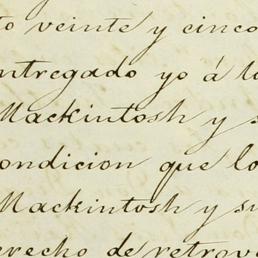 to veinte y cinco
ntregado yo á l
Mackintosh y s
ondicion que lo
Mackintosh y su
erecho de retrov